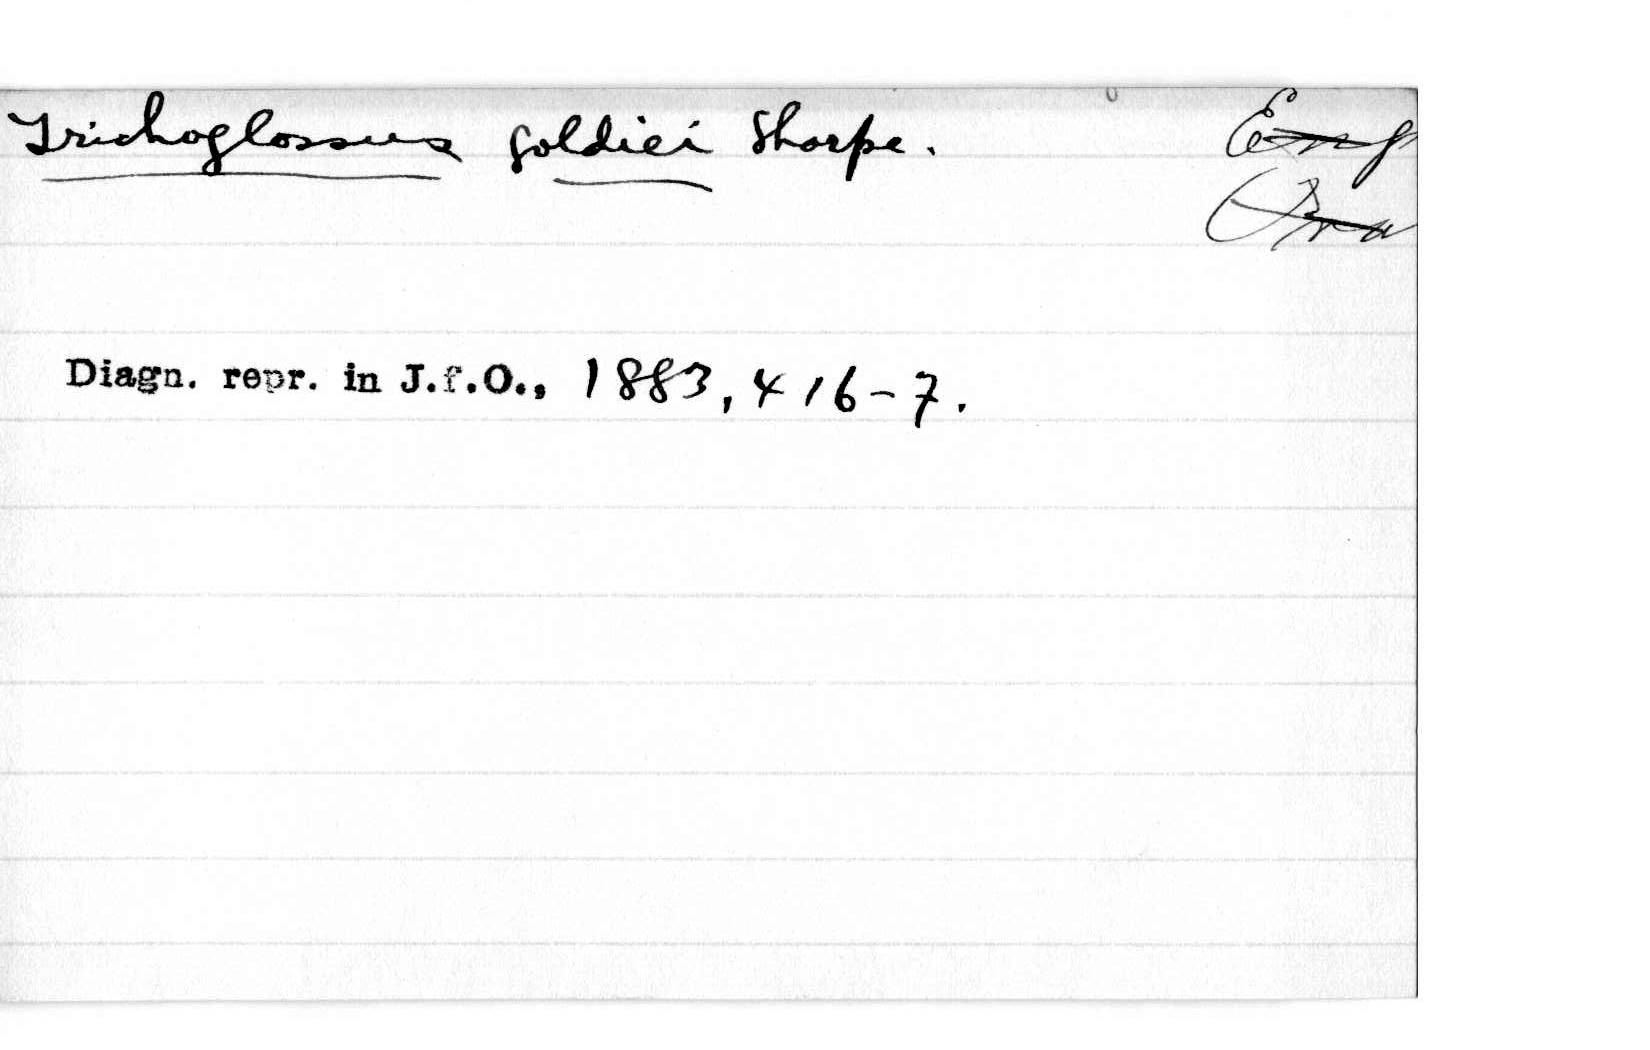 Trichoglossus goldiei Sharpe.
Eng
Diagn. repr. in J.f.O., 1883, 416-7.